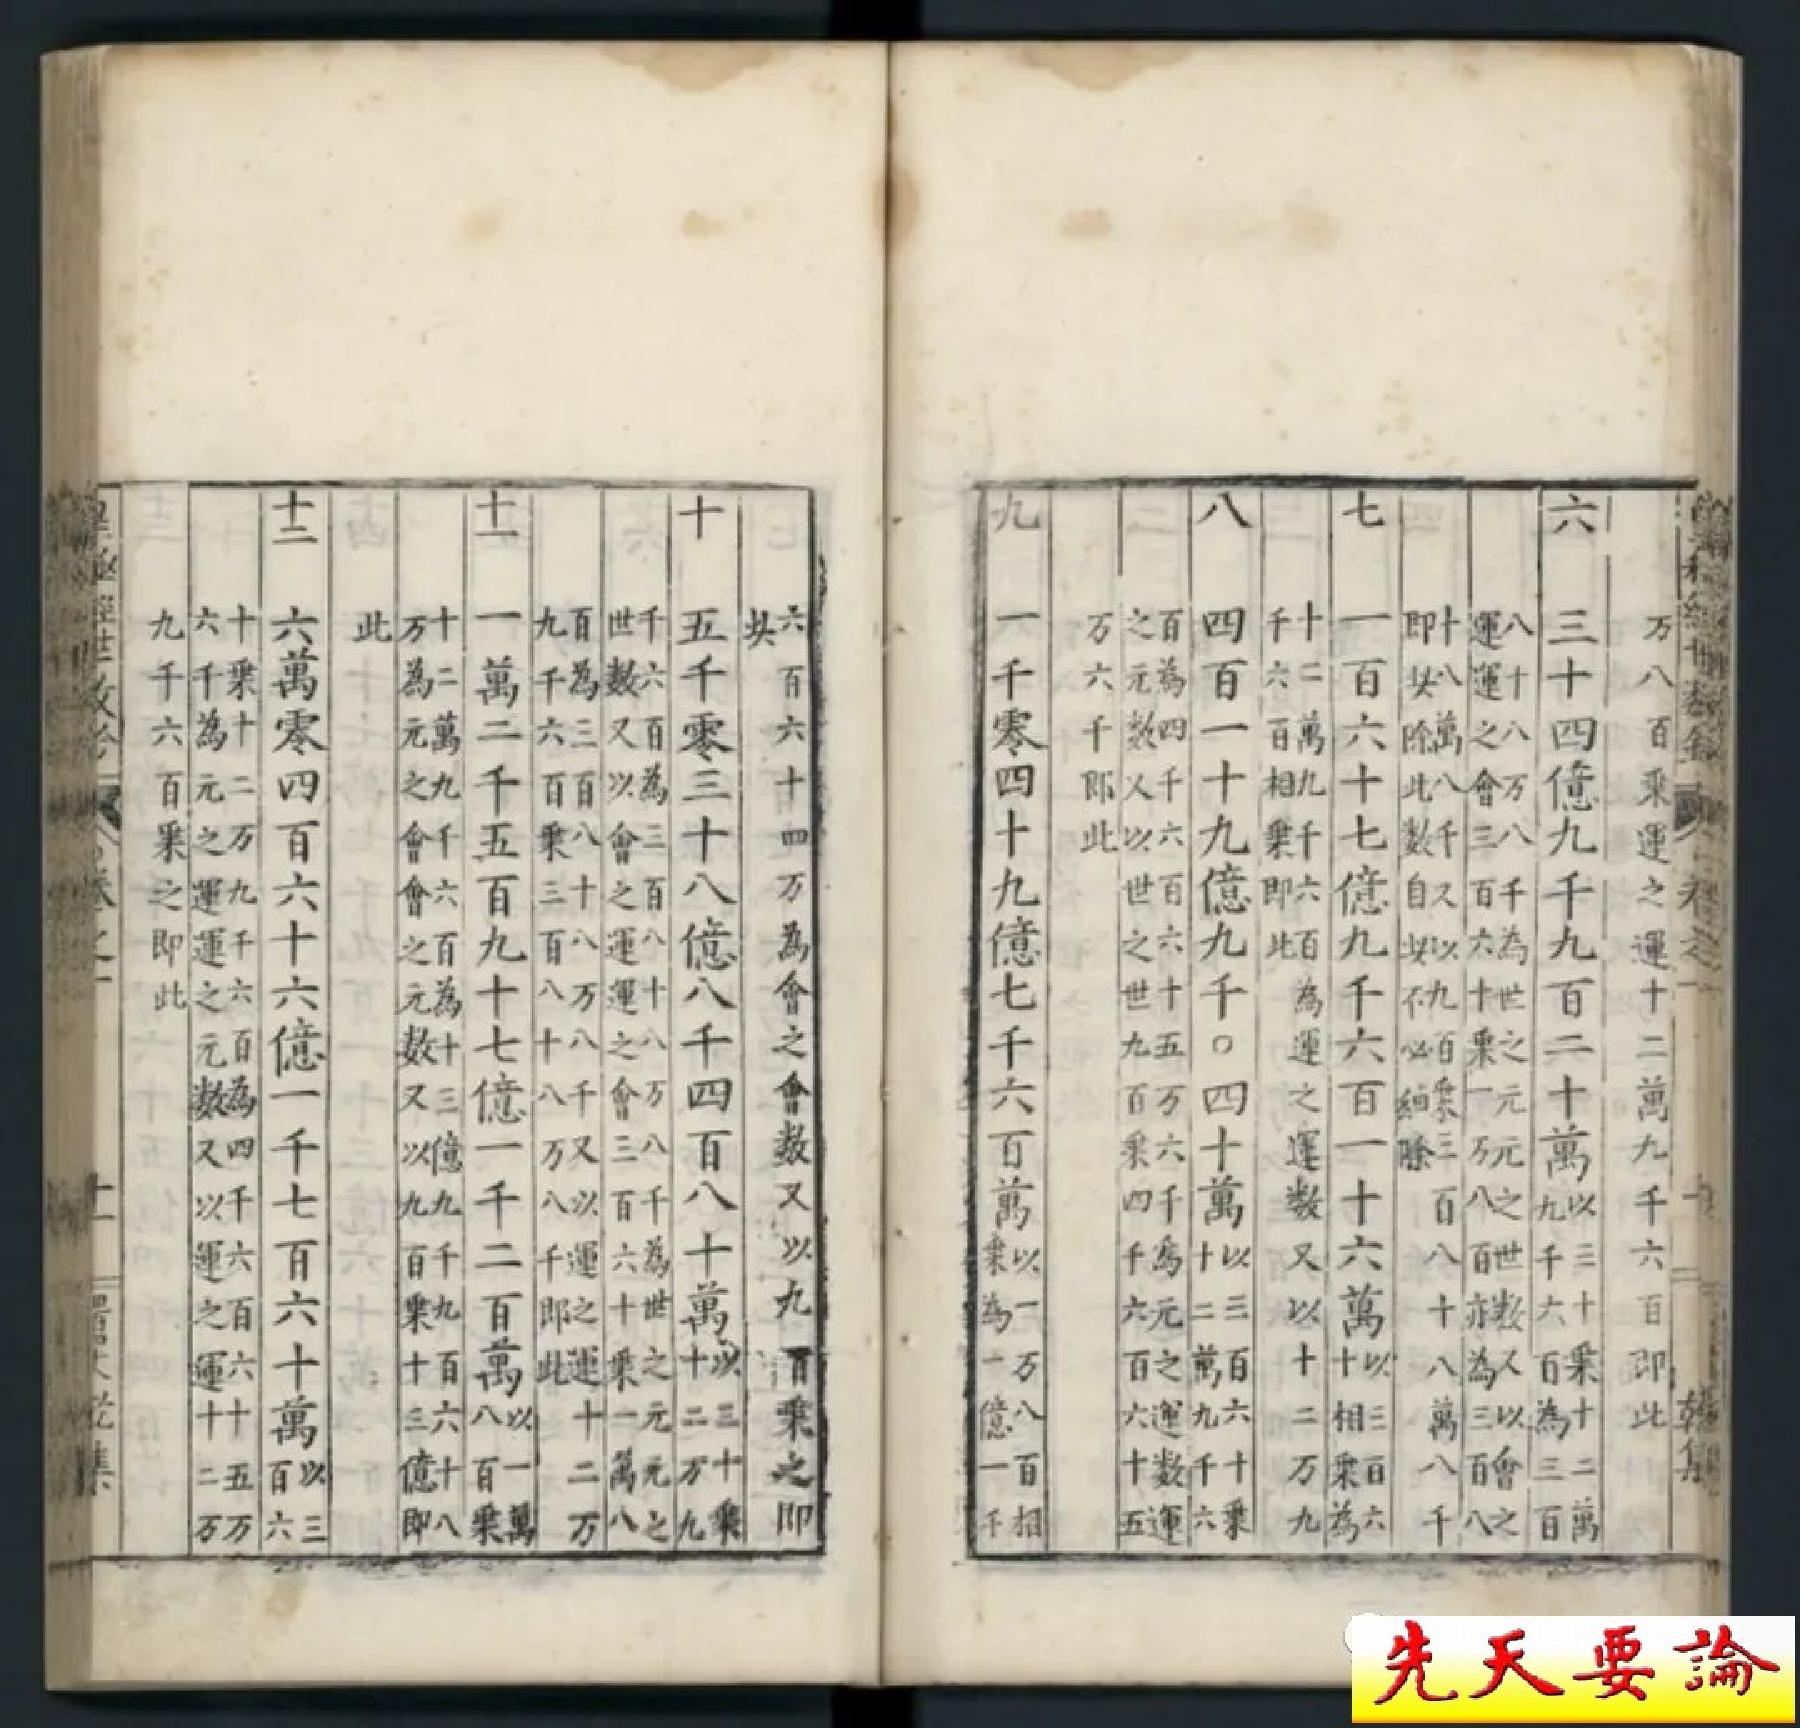 万八百乗運之運十二萬九千六百即此
六 三十四億九千九百二十萬以三十乗十二萬
九千六百為三百
八十八万八千為世之元元之世数人以會之
運運之會三百六十乗一万八百亦為三百八
十八萬八千又以九百乗三百八十八萬八千
即此除此数自此不必細除
七 一百六十七億九千六百一十六萬以三百六
十相乗為
十二萬九千六百為運之運数又以十二万九
千六百相乗即此
八 四百一十九億九千〇四十萬以三百六十乗
十二萬九千六
百為四千六百六十五万六千為元之運数運
之元数人以世之世九百乗四千六百六十五
万六千即此
九 一千零四十九億七千六百萬以一万八百相
乗為一億一千
六百六十四万為會之會数又以九百乗之即
此
十 五千零三十八億八千四百八十萬以三十乗
十二万九
千六百為三百八十八万八千為世之元元之
世数又以會之運運之會三百六十乗一萬八
百為三百八十八万八千又以運之運十二万
九千六百乗三百八十八万八千即此
十一 一萬二千五百九十七億一千二百萬以一萬
八百乗
十二萬九千六百為十三億九千九百六十八
万為元之會會之元数又以九百乗十三億即
此
十二 六萬零四百六十六億一千七百六十萬以三
百六
十乗十二万九千六百為四千六百六十五万
六千為元之運運之元数又以運之運十二万
九千六百乗之即此
十一
先天要論